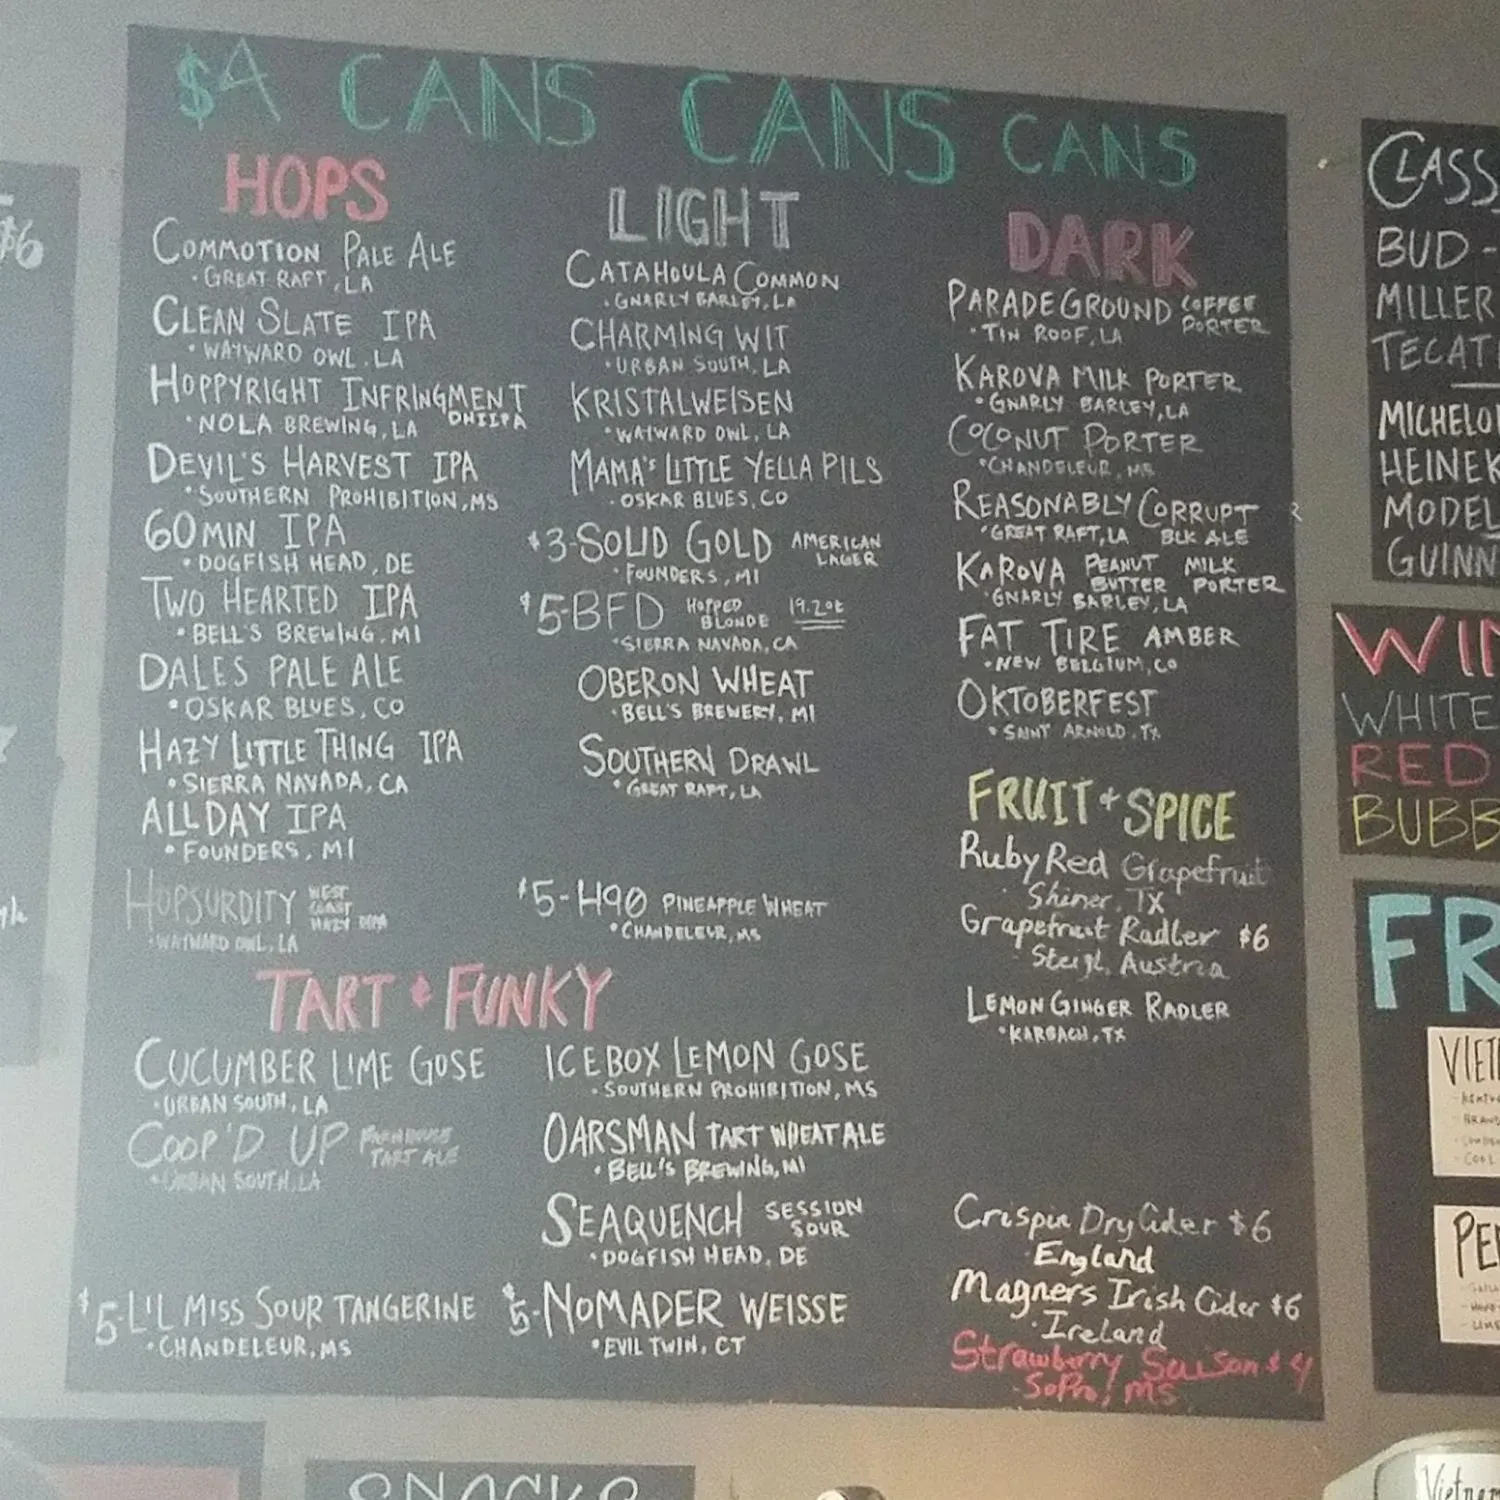 $4 CANS CANS CANS
HOPS
COMMOTION PALE ALE
• GREAT RAFT, LA
CLEAN SLATE IPA
• WAYWARD OWL, LA
HOPPYRIGHT INFRINGMENT
• NOLA BREWING, LA
DEVIL'S HARVEST IPA
• SOUTHERN PROHIBITION, MS
60 MIN IPA
• DOGFISH HEAD, DE
TWO HEARTED IPA
• BELL'S BREWING, MI
DALES PALE ALE
• OSKAR BLUES, CO
HAZY LITTLE THING IPA
• SIERRA NAVADA, CA
ALLDAY IPA
• FOUNDERS, MI
HOPSURDITY WEST
COAST
HAZY
• WAYWARD OWL, LA
LIGHT
CATAHOULA COMMON
• GNARLY BARLEY, LA
CHARMING WIT
• URBAN SOUTH, LA
KRISTALWEISEN
• WAYWARD OWL, LA
MAMA'S LITTLE YELLA PILS
• OSKAR BLUES, CO
$3-SOLID GOLD AMERICAN
LAGER
• FOUNDERS, MI
$5-BFD HOPPED 19.2oz
BLONDE
• SIERRA NAVADA, CA
OBERON WHEAT
• BELL'S BREWERY, MI
SOUTHERN DRAWL
• GREAT RAFT, LA
$5-H90 PINEAPPLE WHEAT
• CHANDELEUR, MS
DARK
PARADEGROUND COFFEE
PORTER
• TIN ROOF, LA
KAROVA MILK PORTER
• GNARLY BARLEY, LA
COCONUT PORTER
• CHANDELEUR, MS
REASONABLY CORRUPT
• GREAT RAFT, LA BLK ALE
KAROVA PEANUT MILK
BUTTER PORTER
• GNARLY BARLEY, LA
FAT TIRE AMBER
• NEW BELGIUM, CO
OKTOBERFEST
• SAINT ARNOLD, TX
FRUIT + SPICE
Ruby Red Grapefruit
• Shiner, TX
Grapefruit Radler $6
• Steigl, Austria
LEMON GINGER RADLER
• KARBACH, TX
Crispin Dry Cider $6
• England
Magners Irish Cider $6
• Ireland
Strawberry Saison $4
- SoPro, MS
TART + FUNKY
CUCUMBER LIME GOSE
• URBAN SOUTH, LA
COOP'D UP FARMHOUSE
TART ALE
• URBAN SOUTH, LA
$5-LI'L MISS SOUR TANGERINE
• CHANDELEUR, MS
ICEBOX LEMON GOSE
• SOUTHERN PROHIBITION, MS
OARSMAN TART WHEAT ALE
• BELL'S BREWING, MI
SEAQUENCH SESSION
SOUR
• DOGFISH HEAD, DE
$5-NOMADER WEISSE
• EVIL TWIN, CT
$6
CLASS
BUD -
MILLER
TECAT
MICHELO
HEINEK
MODEL
GUINN
WIN
WHITE
RED
BUBB
FR
VIET
COOL
PE
SNACKS
Vietnam